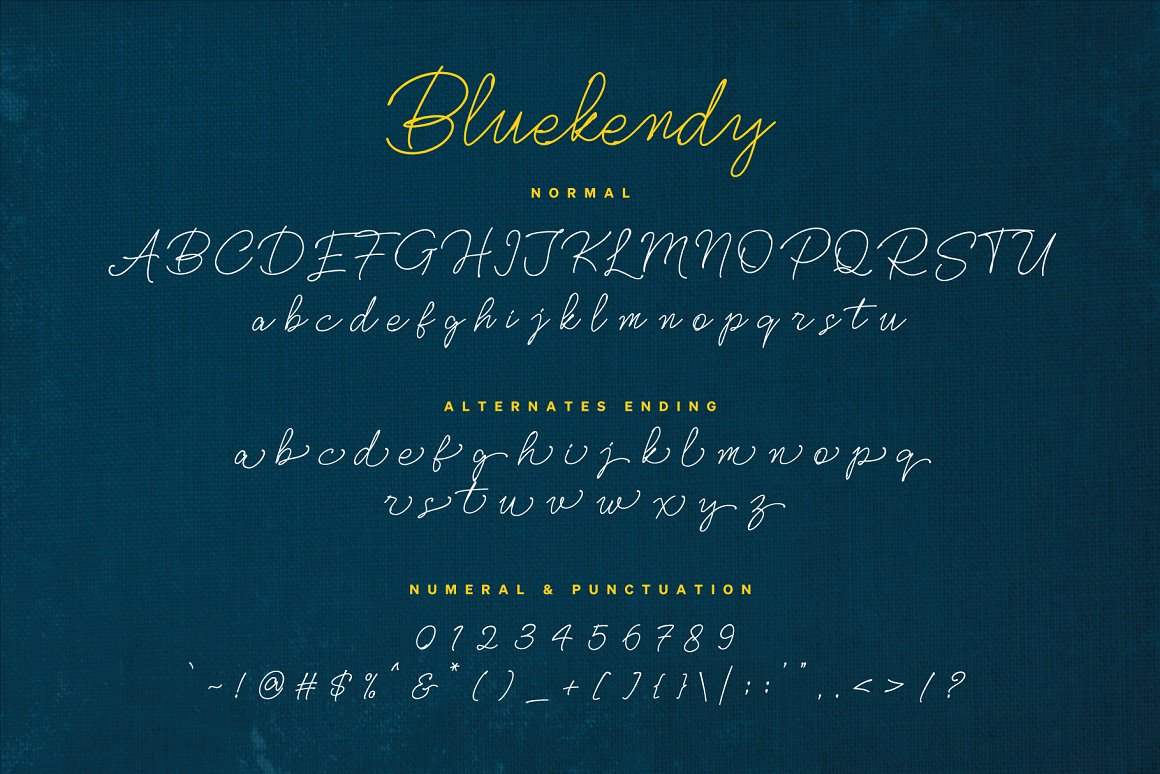 Bluekendy
NORMAL
ABCDEFGHIJKLMNOPQRSTU
abcdefghijklmnopqrstu
ALTERNATES ENDING
abcdefghijklmnopq
rstuvwxyz
NUMERAL & PUNCTUATION
0123456789
`~!@#$%^&*()_+[]{}\|;:'",.<>/?